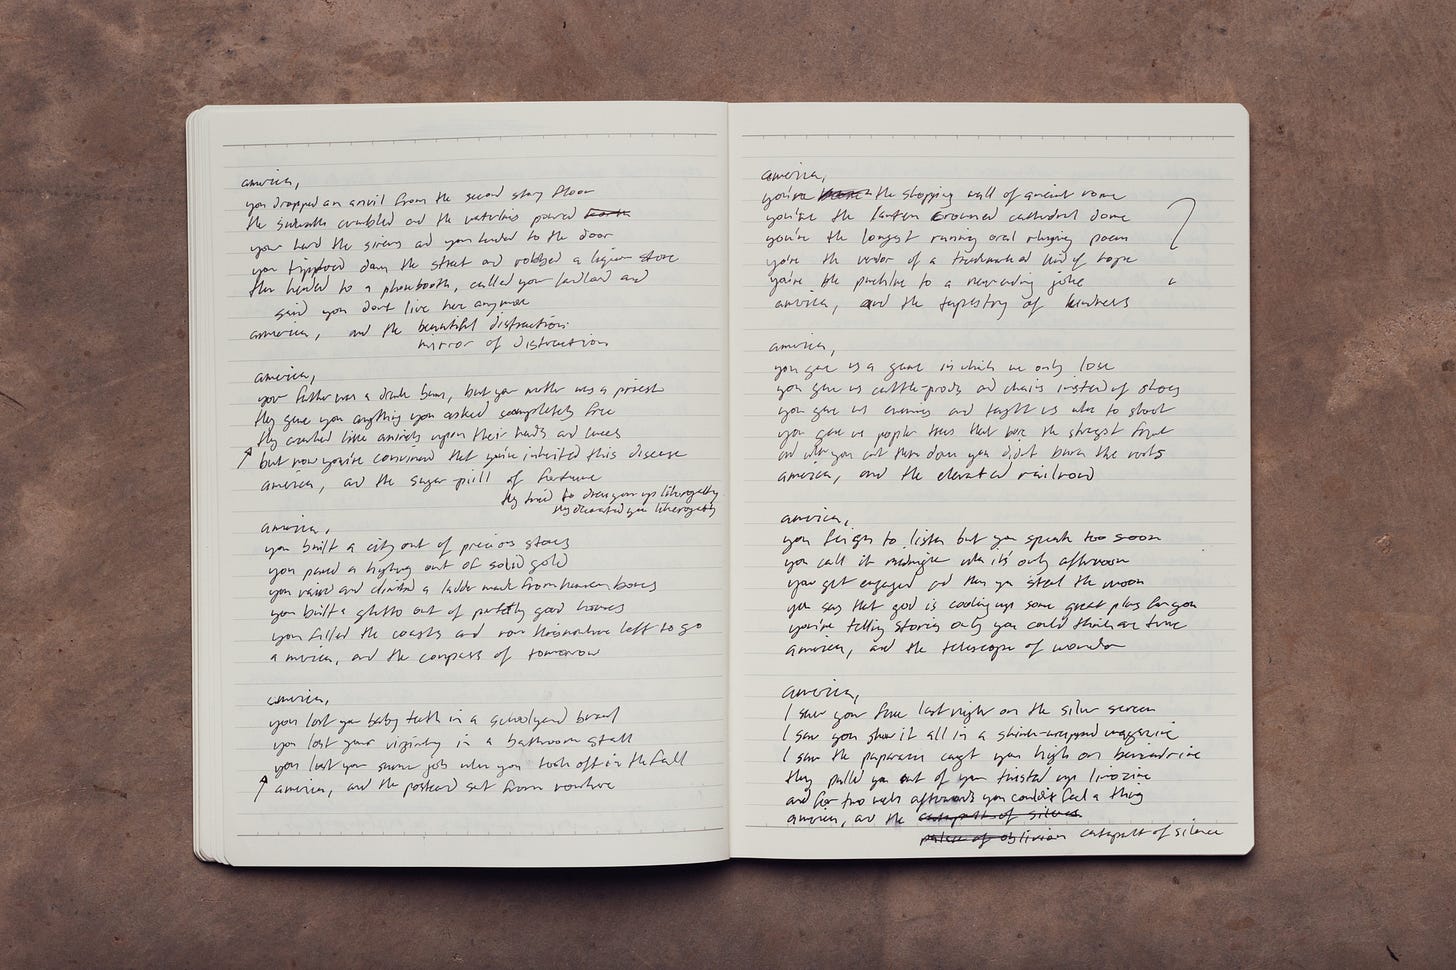 america,
you dropped an anvil from the second story floor
the sidewalk crumbled and the watches poured
you heard the sirens and you headed to the door
you tiptoed down the street and robbed a liquor store
then headed to a phonebooth, called your landlord and
said you don't live here anymore
america, and the beautiful distraction
mirror of distraction
america,
your father was a drunk bum, but your mother was a priest
they gave you anything you asked completely free
they crawled like animals upon their hands and knees
but now you're convinced that you've inherited this disease
america, and the sugar pill of fortune
they tried to dress you up
they decorated you
america,
you built a city out of precious stones
you paved a highway out of solid gold
you raised and climbed a ladder made from human bones
you built a ghetto out of perfectly good homes
you filled the coasts and now there's nowhere left to go
america, and the compass of tomorrow
america,
you lost your baby teeth in a schoolyard brawl
you lost your virginity in a bathroom stall
you lost your summer job when you took off in the fall
america, and the postcard sent from nowhere
america,
you're the shopping mall of ancient rome
you're the lantern crowned cathedral dome
you're the longest running oral rhyming poem
you're the vendor of a trademarked kind of hope
you're the punchline to a neverending joke
america, and the tapestry of
america,
you gave us a game in which we only lose
you gave us cattle-prods and chains instead of shoes
you gave us enemies and taught us who to shoot
you gave us poplar trees that bore the strangest fruit
and when you cut them down you didn't burn the roots
america, and the elevated railroad
america,
you feign to listen but you speak too soon
you call it midnight when it's only afternoon
you get engaged and then you steal the moon
you say that god is cooking up some great plans for you
you're telling stories only you could think are true
america, and the telescope of wonder
america,
I saw your face last night on the silver screen
I saw you show it all in a shrink-wrapped magazine
I saw the paparazzi caught you high on benzedrine
they pulled you out of your twisted up limozine
and for two weeks afterwards you couldn't feel a thing
america, and the catapult of silence
palace of oblivion catapult of silence